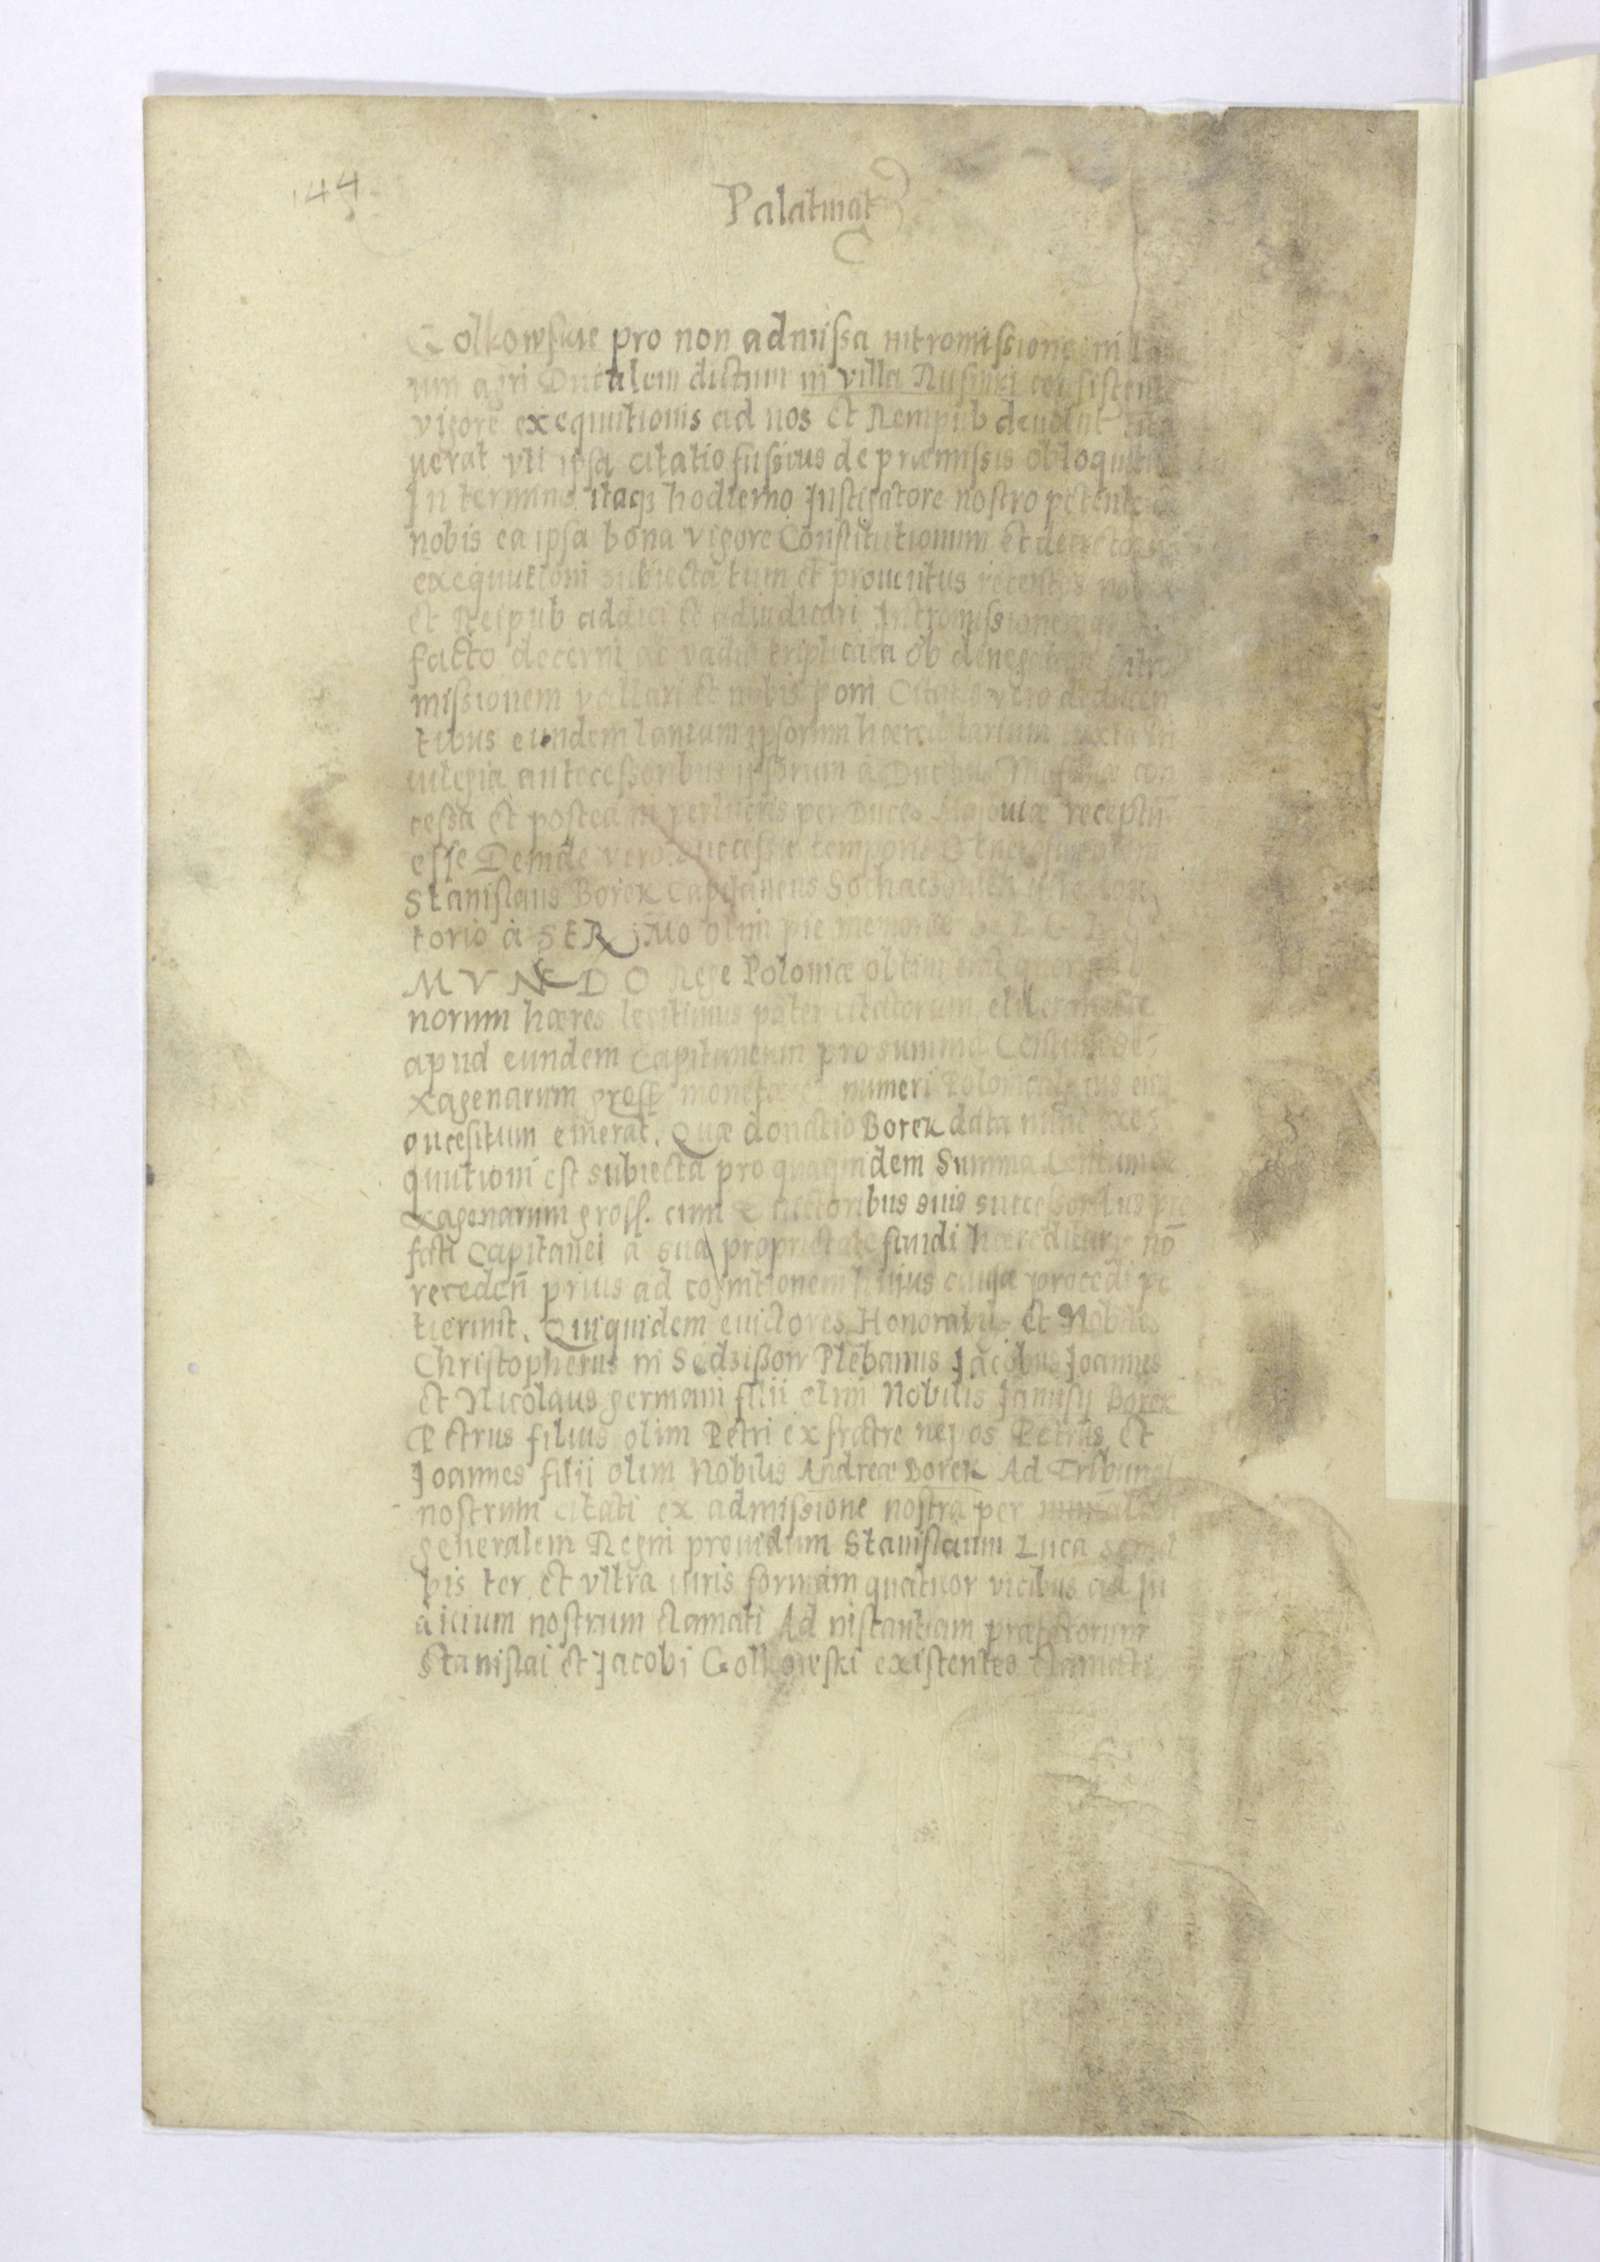 144
Palatinat
Golkowskie pro non admissa intromissione in lane
um agri Ducalem dictum in villa Rusinki consistem
vigore exequutionis ad nos et Rempub devolut cita
uerat vti ipsa citatio fusius de præmissis obloquitur
In termino itaq3 hodierno Instigatore nostro petente a
nobis ea ipsa bona vigore Constitutionum et decretorum
exequutioni subiecta tum et prouentus recentes nobis
et Reipub addici et adiudicari Intromissionem
facto decerni ac vadia triplicata ob denegatam intro
missionem vallari et nobis poni Citatis vero deducen
tibus eundem laneum ipsorum hæreditarium iuxta pri
uilegia antecessoribus ipsorum a Ducibus Masouiæ con
cessa et postea in per Duces Masouiæ receptū
esse Deinde vero successu temporis Generosus olim
Stanislaus Borek Capitaneus Sochaczouien
torio à SER MO olim pie memoriæ
MVNDO Rege Poloniæ obtinuerat
norum hæres legitimus pater citatorum
apud eundem Capitaneum pro summa Centum se
xagenarum gross monetæ et numeri Polonicalis
emerat. Quæ donatio Borek data nunc exe
quutioni est subiecta pro quaquidem Summa Centum se
xagenarum gross. cum Euictoribus suis successoribus præ
fati Capitanei a sua proprietate fundi hæreditarij nō
recedeñ prius ad cognitionem huius causæ procedi pe
tierunt. Quiquidem euictores Honorabilis et Nobilis
Christophorus in Sedzissow Plebanus Jacobus Joannes
et Nicolaus germani filii olim Nobilis Janusij Borek
Petrus filius olim Petri ex fratre nepos Petrus et
Joannes filii olim Nobilis Andreæ Borek Ad Tribunal
nostrum citati ex admissione nostra per
generalem Regni prouidum Stanislaum Luca semel
bis ter et vltra iuris formam quatuor vicibus ad iu
dicium nostrum clamati Ad instantiam præfatorum
Stanislai et Jacobi Golkowski existentes clamati